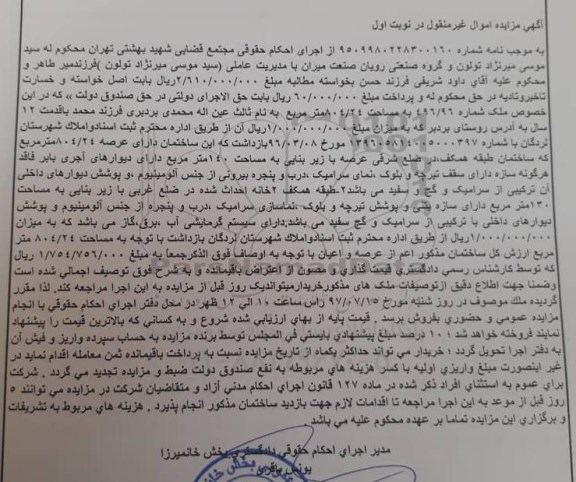 آگهی مزایده اموال غیرمنقول در نوبت اول
به موجب نامه شماره ۹۵۰۹۹۸۰۲۲۸۳۰۰۱۶۰ از اجرای احکام حقوقی مجتمع قضایی شهید بهشتی تهران محکوم له سید
موسی میرنژاد تولون و گروه صنعتی رویان صنعت میران با مدیریت عاملی (سید موسی میرنژاد تولون )فرزندمیر طاهر و
محکوم علیه آقای داود شریفی فرزند حسن بخواسته مطالبه مبلغ ۲/۶۱۰/۰۰۰/۰۰۰ریال بابت اصل خواسته و خسارت
تاخیروتادیه در حق محکوم له و پرداخت مبلغ ۶۰/۰۰۰/۰۰۰ ریال بابت حق الاجرای دولتی در حق صندوق دولت « که در این
خصوص ملک شماره به مساحت مترمربع به نام ثالث عین اله محمدی بردبری فرزند محمد باقدمت ۱۲
سال به آدرس روستای بردبر که به میزان مبلغ ۱/۰۰۰/۰۰۰/۰۰۰ریال آن از طریق اداره محترم ثبت اسنادواملاک شهرستان
لردگان با شماره مورخ ۹۶/۰۳/۰۸بازداشت که این ساختمان دارای عرصه ۸۰۴/۲۴مترمربع
که ساختمان طبقه همکف،در ضلع شرقی عرصه با زیر بنایی به مساحت ۱۴۰متر مربع دارای دیوارهای آجری بابر فاقد
هرگونه سازه دارای سقف تیرچه و بلوک ،نمای سرامیک ،درب و پنجره بیرونی از جنس آلومینیوم ،و پوشش دیوارهای داخلی
آن ترکیبی از سرامیک و گچ و سفید می باشد۲-طبقه همکف ۲خانه احداث شده در ضلع غربی با زیر بنایی به مساحت
۱۳۰متر مربع دارای سازه بتنی و پوشش تیرچه و بلوک ،نماسازی سرامیک ،درب و پنجره از جنس آلومینیوم و پوشش
دیوارهای داخلی با ترکیبی از سرامیک و گچ سفید می باشد.دارای سیستم گرمایشی آب ،برق،گاز می باشد که به میزان
۱/۰۰۰/۰۰۰/۰۰۰ریال از طریق اداره محترم ثبت اسنادواملاک شهرستان لردگان بازداشت با توجه به مساحت ۸۰۴/۲۴ متر
مربع ارزش کل ساختمان مذکور اعم از عرصه و اعیان با توجه به اوصاف فوق الذکرجمعاً به مبلغ ۱/۷۵۴/۷۵۶/۰۰۰ ریال
که توسط کارشناس رسمی دادگستری قیمت گذاری و مصون از اعتراض باقیمانده و به شرح فوق توصیف اجمالی شده است
وضمنا جهت اطلاع دقیق ازتوصیفات ملک های مذکورخریدارمیتواندیک روز قبل از مزایده به این اجرا مراجعه کند. لذا مقرر
گردیده ملک موصوف در روز شنبه مورخ ۹۷/۰۷/۱۵ راس ساعت ۱۰ الی ۱۲ ظهر در محل دفتر اجرای احکام حقوقی با انجام
مزایده عمومی و حضوری بفروش برسد . قیمت پایه از بهای ارزیابی شده شروع و به کسانی که بالاترین قیمت را پیشنهاد
نمایند فروخته خواهد شد ۱۰ درصد مبلغ پیشنهادی بایستی فی المجلس توسط برنده مزایده به حساب سپرده واریز و فیش آن
به دفتر اجرا تحویل گردد ؛ خریدار می تواند حداکثر یکماه از تاریخ مزایده نسبت به پرداخت باقیمانده ثمن معامله اقدام نماید در
غیر اینصورت مبلغ واریزی اولیه با کسر هزینه های مربوطه به نفع صندوق دولت ضبط و مزایده تجدید می گردد . شرکت
برای عموم به استثنای افراد ذکر شده در ماده ۱۲۷ قانون اجرای احکام مدنی آزاد و متقاضیان شرکت در مزایده می توانند ۵
روز قبل از موعد به این اجرا مراجعه تا اقدامات لازم جهت بازدید ساختمان مذکور انجام پذیرد . هزینه های مربوط به تشریفات
و برگزاری این مزایده تماما بر عهده محکوم علیه می باشد.
مدیر اجرای احکام حقوقی دادگستری بخش خانمیرزا
یونس باقری